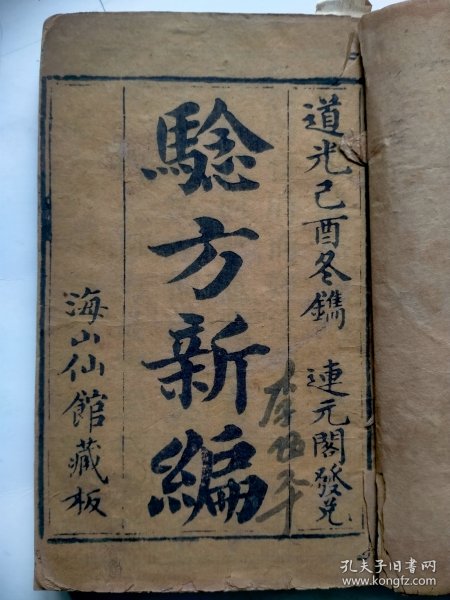 道光己酉冬鐫 連元閣發兑
騐方新編
海山仙館藏板
孔夫子旧书网
www.kongfz.com